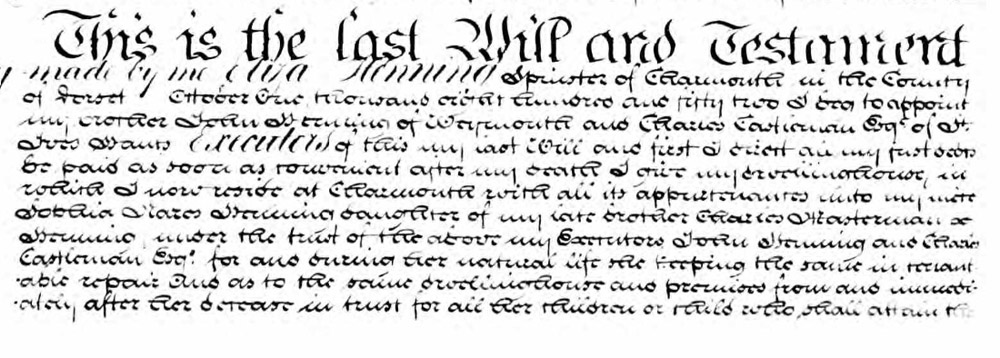 This is the last Will and Testament
made by me Eliza Henning Spinster of Charmouth in the County
of Dorset October One thousand eight hundred and fifty two I beg to appoint
my brother John Henning of Weymouth and Charles Castleman Esqr. of St.
Ives Hants Executors of this my last Will and first I direct all my just debts
be paid as soon as convenient after my death I give my dwellinghouse, in
which I now reside at Charmouth with all its appurtenances unto my niece
Sophia Nares Henning daughter of my late brother Charles Masterman
Henning under the trust of the above my Executors John Henning and Charles
Castleman Esqr. for and during her natural life she keeping the same in tenant
-able repair And as to the same dwellinghouse and premises from and immedi-
-ately after her decease in trust for all her children or child who shall attain